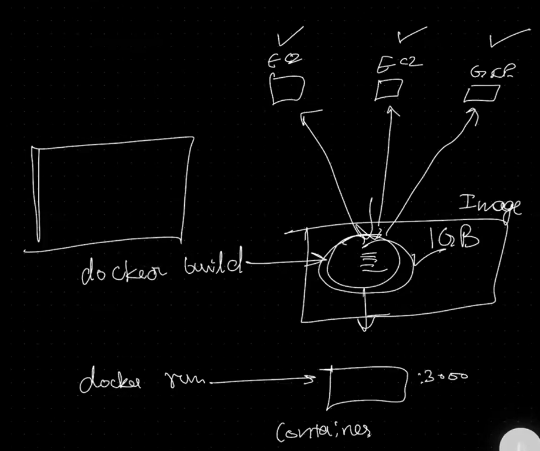 EC2
EC2
GCP
Image
1GB
docker build
docker run
:3000
Container